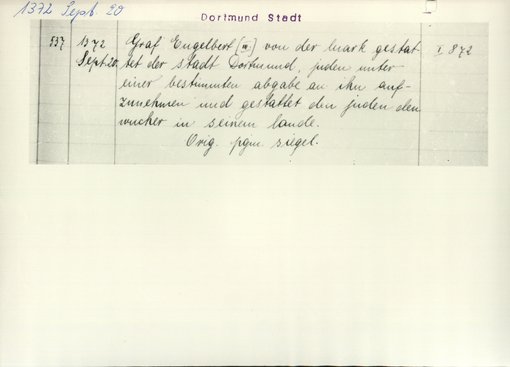 1372 Sept. 20
Dortmund Stadt
537 1372 Graf Engelbert [III] von der Mark gestat- I 872
Sept. 20. tet der stadt Dortmund, juden unter
einer bestimmten abgabe an ihn auf-
zunehmen und gestattet den juden den
wucher in seinem lande.
Orig. pgm. siegel.